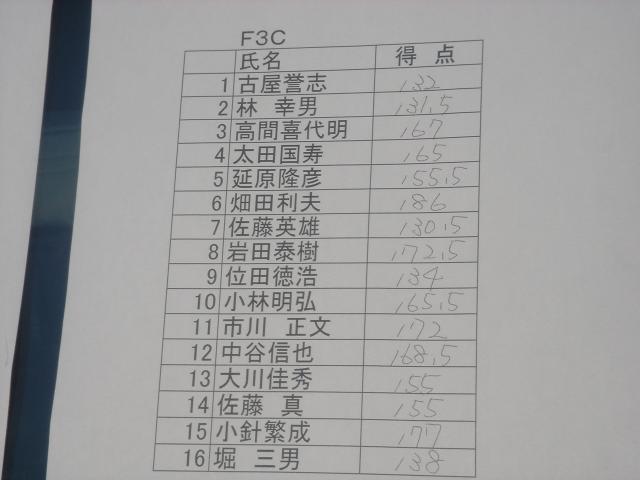 F3C
氏名 得 点
1 古屋誉志 132
2 林 幸男 131.5
3 高間喜代明 167
4 太田国寿 165
5 延原隆彦 155.5
6 畑田利夫 186
7 佐藤英雄 130.5
8 岩田泰樹 172.5
9 位田徳浩 134
10 小林明弘 165.5
11 市川 正文 172
12 中谷信也 168.5
13 大川佳秀 155
14 佐藤 真 155
15 小針繁成 177
16 堀 三男 138